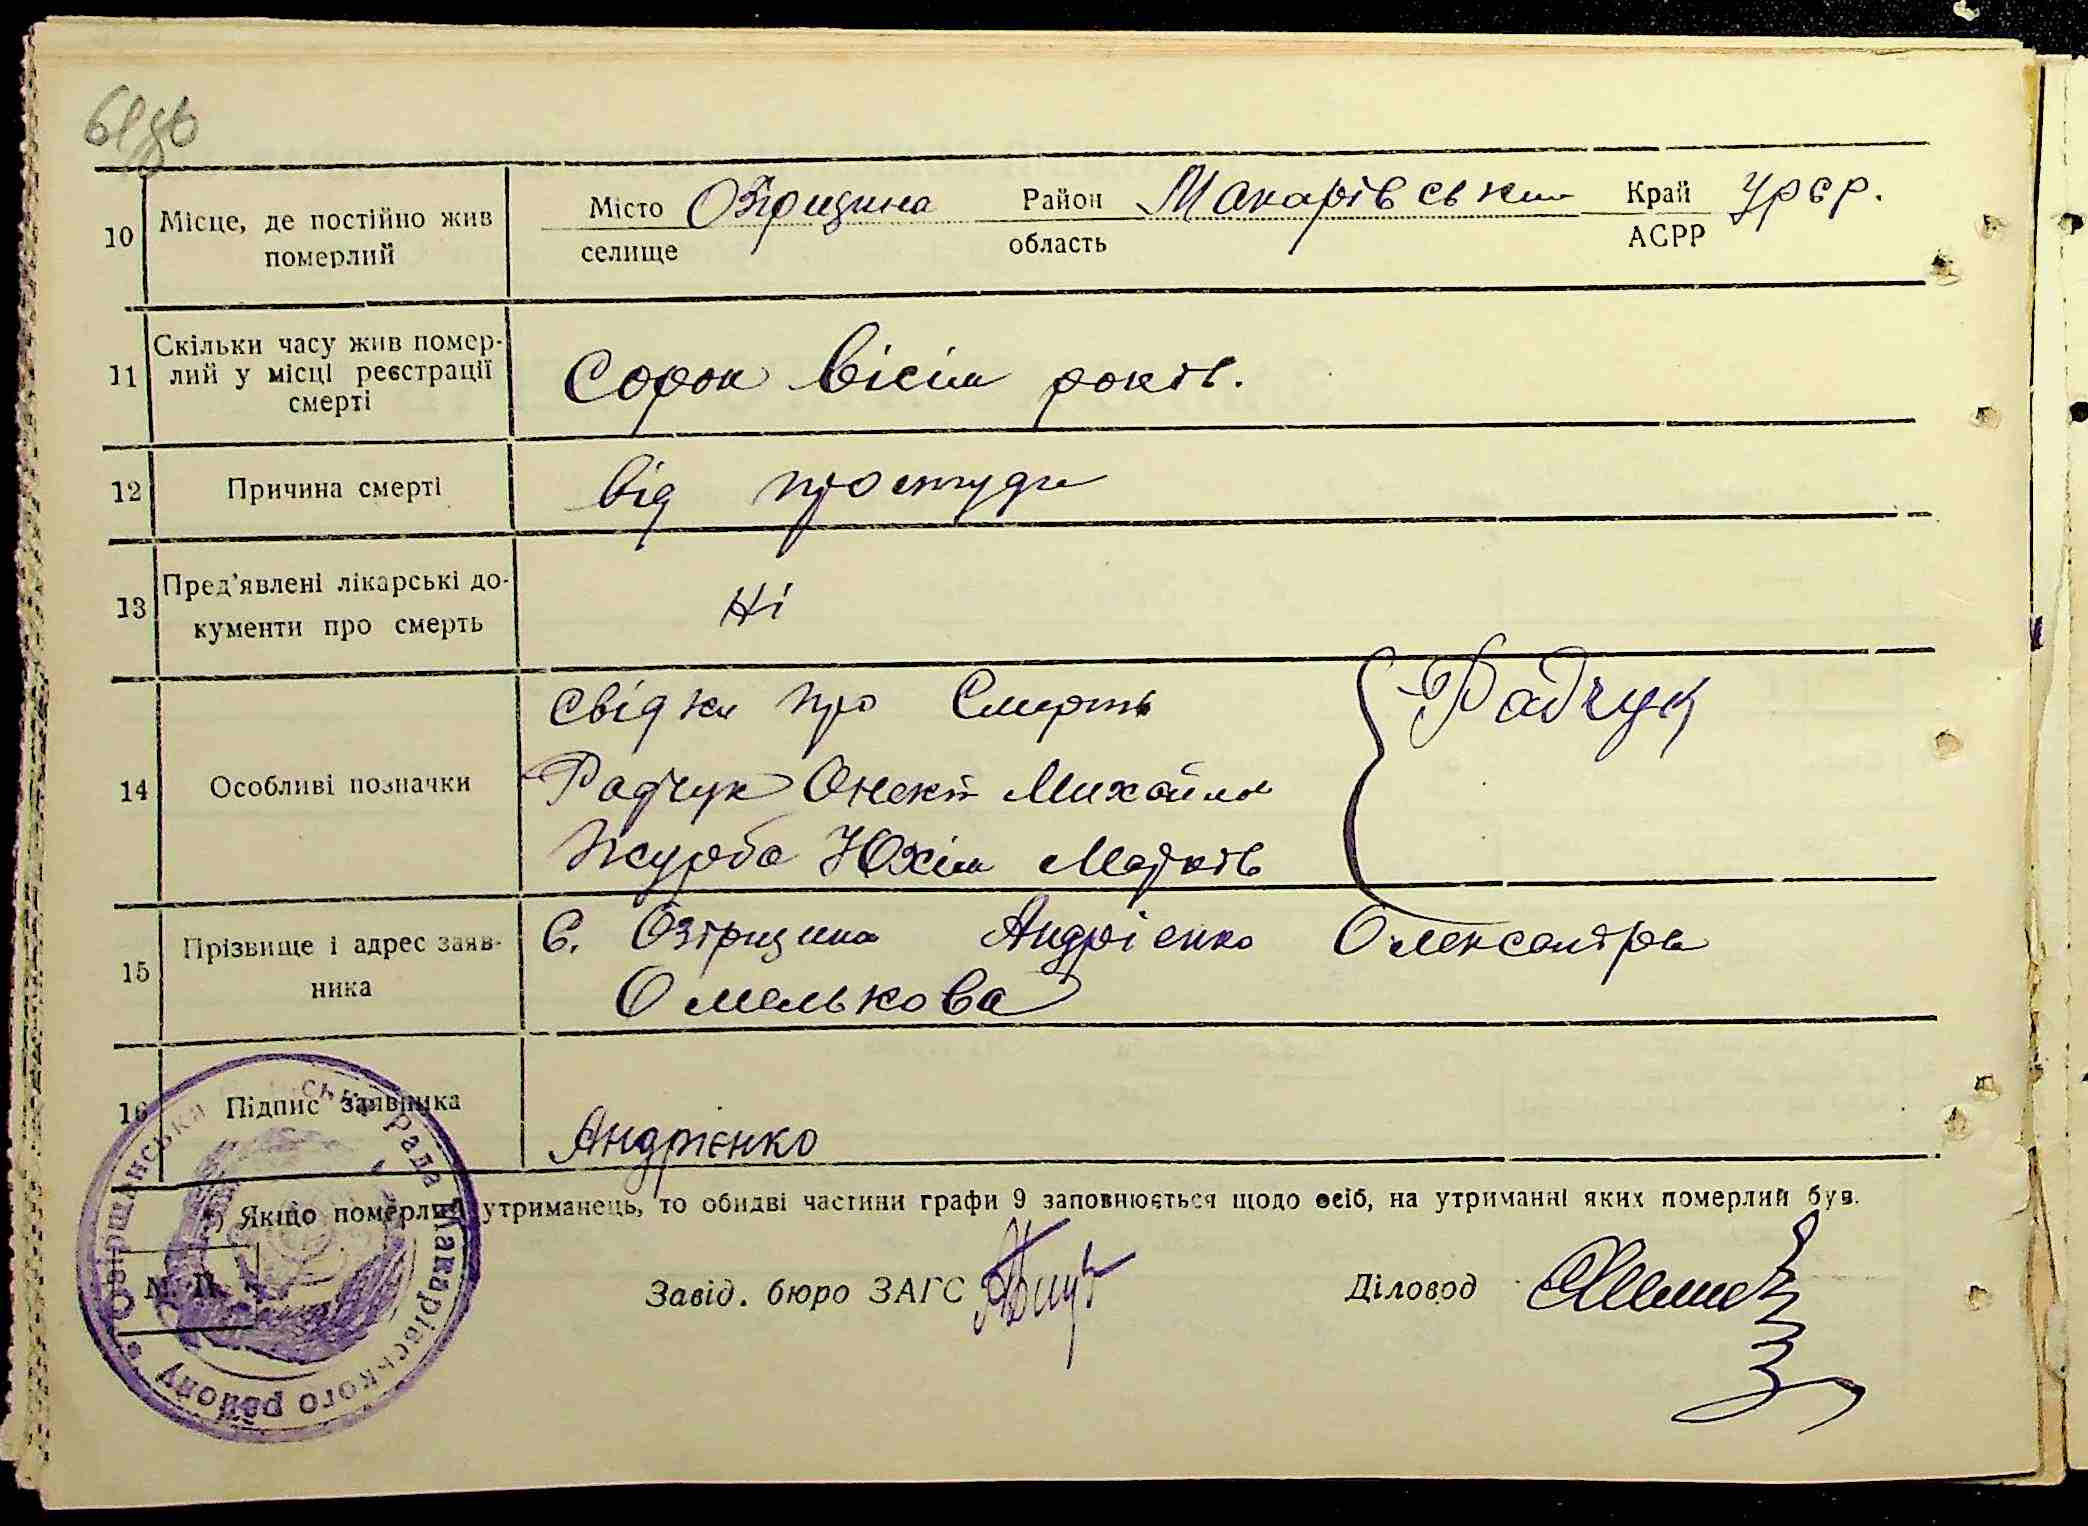 61зв
10 Місце, де постійно жив померлий
Місто Озірщина Район Макарівський Край УРСР.
селище область АСРР
11 Скільки часу жив помер-
лий у місці реєстрації
смерті
Сорок вісім років.
12 Причина смерті
від простуди
13 Пред'явлені лікарські до-
кументи про смерть
Ні
14 Особливі позначки
Свідки про Смерть
Радчук Михайлов
Журба Юхім
Радчук
15 Прізвище і адрес заяв-
ника
С. Озірщина Андрієнко Олександра
Омелькова
16 Підпис заявника
Андрієнко
*) Якщо померлий утриманець, то обидві частини графи 9 заповнюється щодо осіб, на утриманні яких померлий був.
М. П.
Завід. бюро ЗАГС
Діловод
Озірщанська сільська Рада Макарівського району